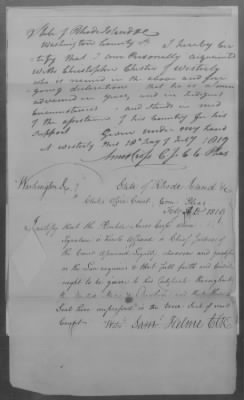 State of Rhode Island &c
Washington County ss I hereby Cer
tify that I am Personally acquainted
With Christopher of Westerly
who is named in the above and fore
going declaration that he is a man
advanced in years, and in indigent
Circumstances - and stands in need
of the assistance of his Country for his
Support Given under my hand
At Westerly this 18th day of July 1819
Amos Cross C. J. C. C. Pleas
Washington Sc. State of Rhode Island &c
Clerks Office Court Com. Pleas
1819
I certify that the Amos Cross whose
Signature is hereto affixed is Chief Justice of
the Court aforesaid legally and qualified
as the Law requires & that full faith and Credit
ought to be given to his throughout
the and that the
Seal here impressed is the Seal of said
Court. Witns. Saml. Helme Clk